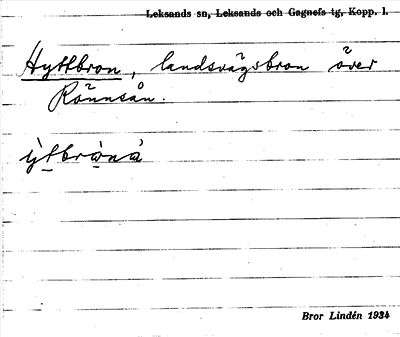 Leksands sn, Leksands och Gagnefs tg, Kopp. l.
Hyttbron, landsvägsbron över
Rönnsån.
Bror Lindén 1934